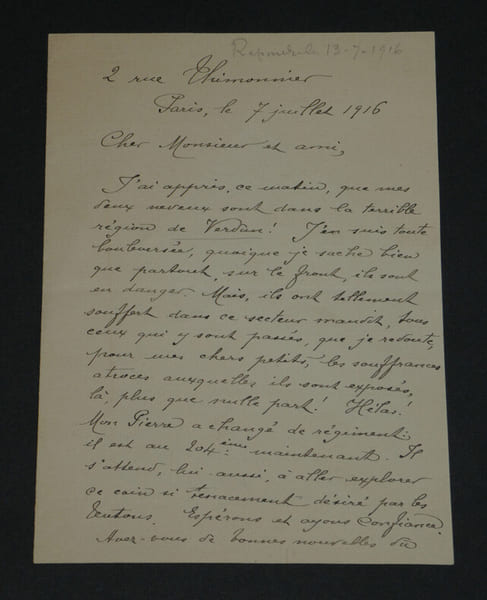 Répondu le 13-7-1916
2 rue Thimonnier
Paris, le 7 juillet 1916
Cher Monsieur et ami,
J'ai appris, ce matin, que mes
deux neveux sont dans la terrible
région de Verdun! J'en suis toute
bouleversée, quoique je sache bien
que partout, sur le front, ils sont
en danger. Mais, ils ont tellement
souffert dans ce secteur maudit, tous
ceux qui y sont passés, que je redoute,
pour mes chers petits, les souffrances
atroces auxquelles ils sont exposés,
là, plus que nulle part! Hélas.
Mon Pierre a changé de régiment:
il est au 204ème maintenant. Il
s'attend, lui aussi, à aller explorer
ce coin si tenacement désiré par les
teutons. Espérons et ayons confiance.
Avez-vous de bonnes nouvelles du